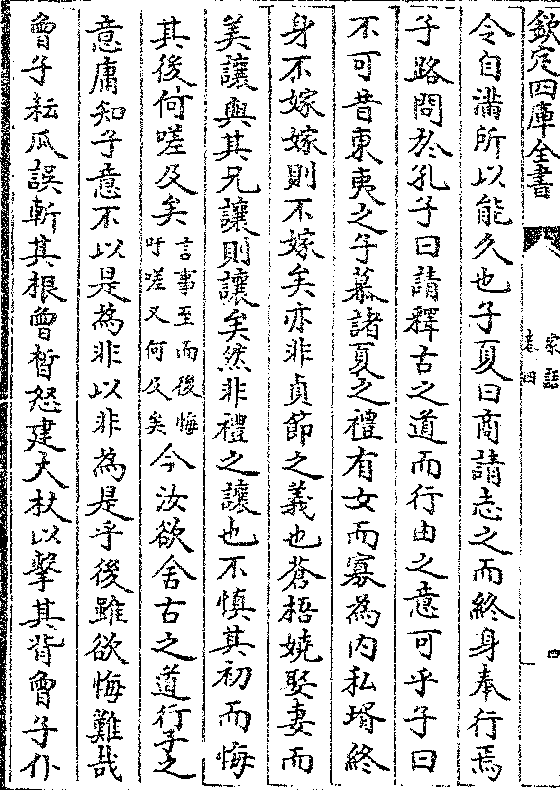 欽定四庫全書
家語
卷四
令自滿所以能久也子夏曰商請志之而終身奉行焉
子路問於孔子曰請釋古之道而行由之意可乎子曰
不可昔東夷之子慕諸夏之禮有女而寡為内私壻終
身不嫁嫁則不嫁矣亦非貞節之義也蒼梧嬈娶妻而
美讓與其兄讓則讓矣然非禮之讓也不慎其初而悔
其後何嗟及矣言事至而後悔吁嗟又何及矣今汝欲舍古之道行子之
意庸知子意不以是為非以非為是乎後雖欲悔難哉
曾子耘瓜誤斬其根曾晳怒建大杖以擊其背曾子仆